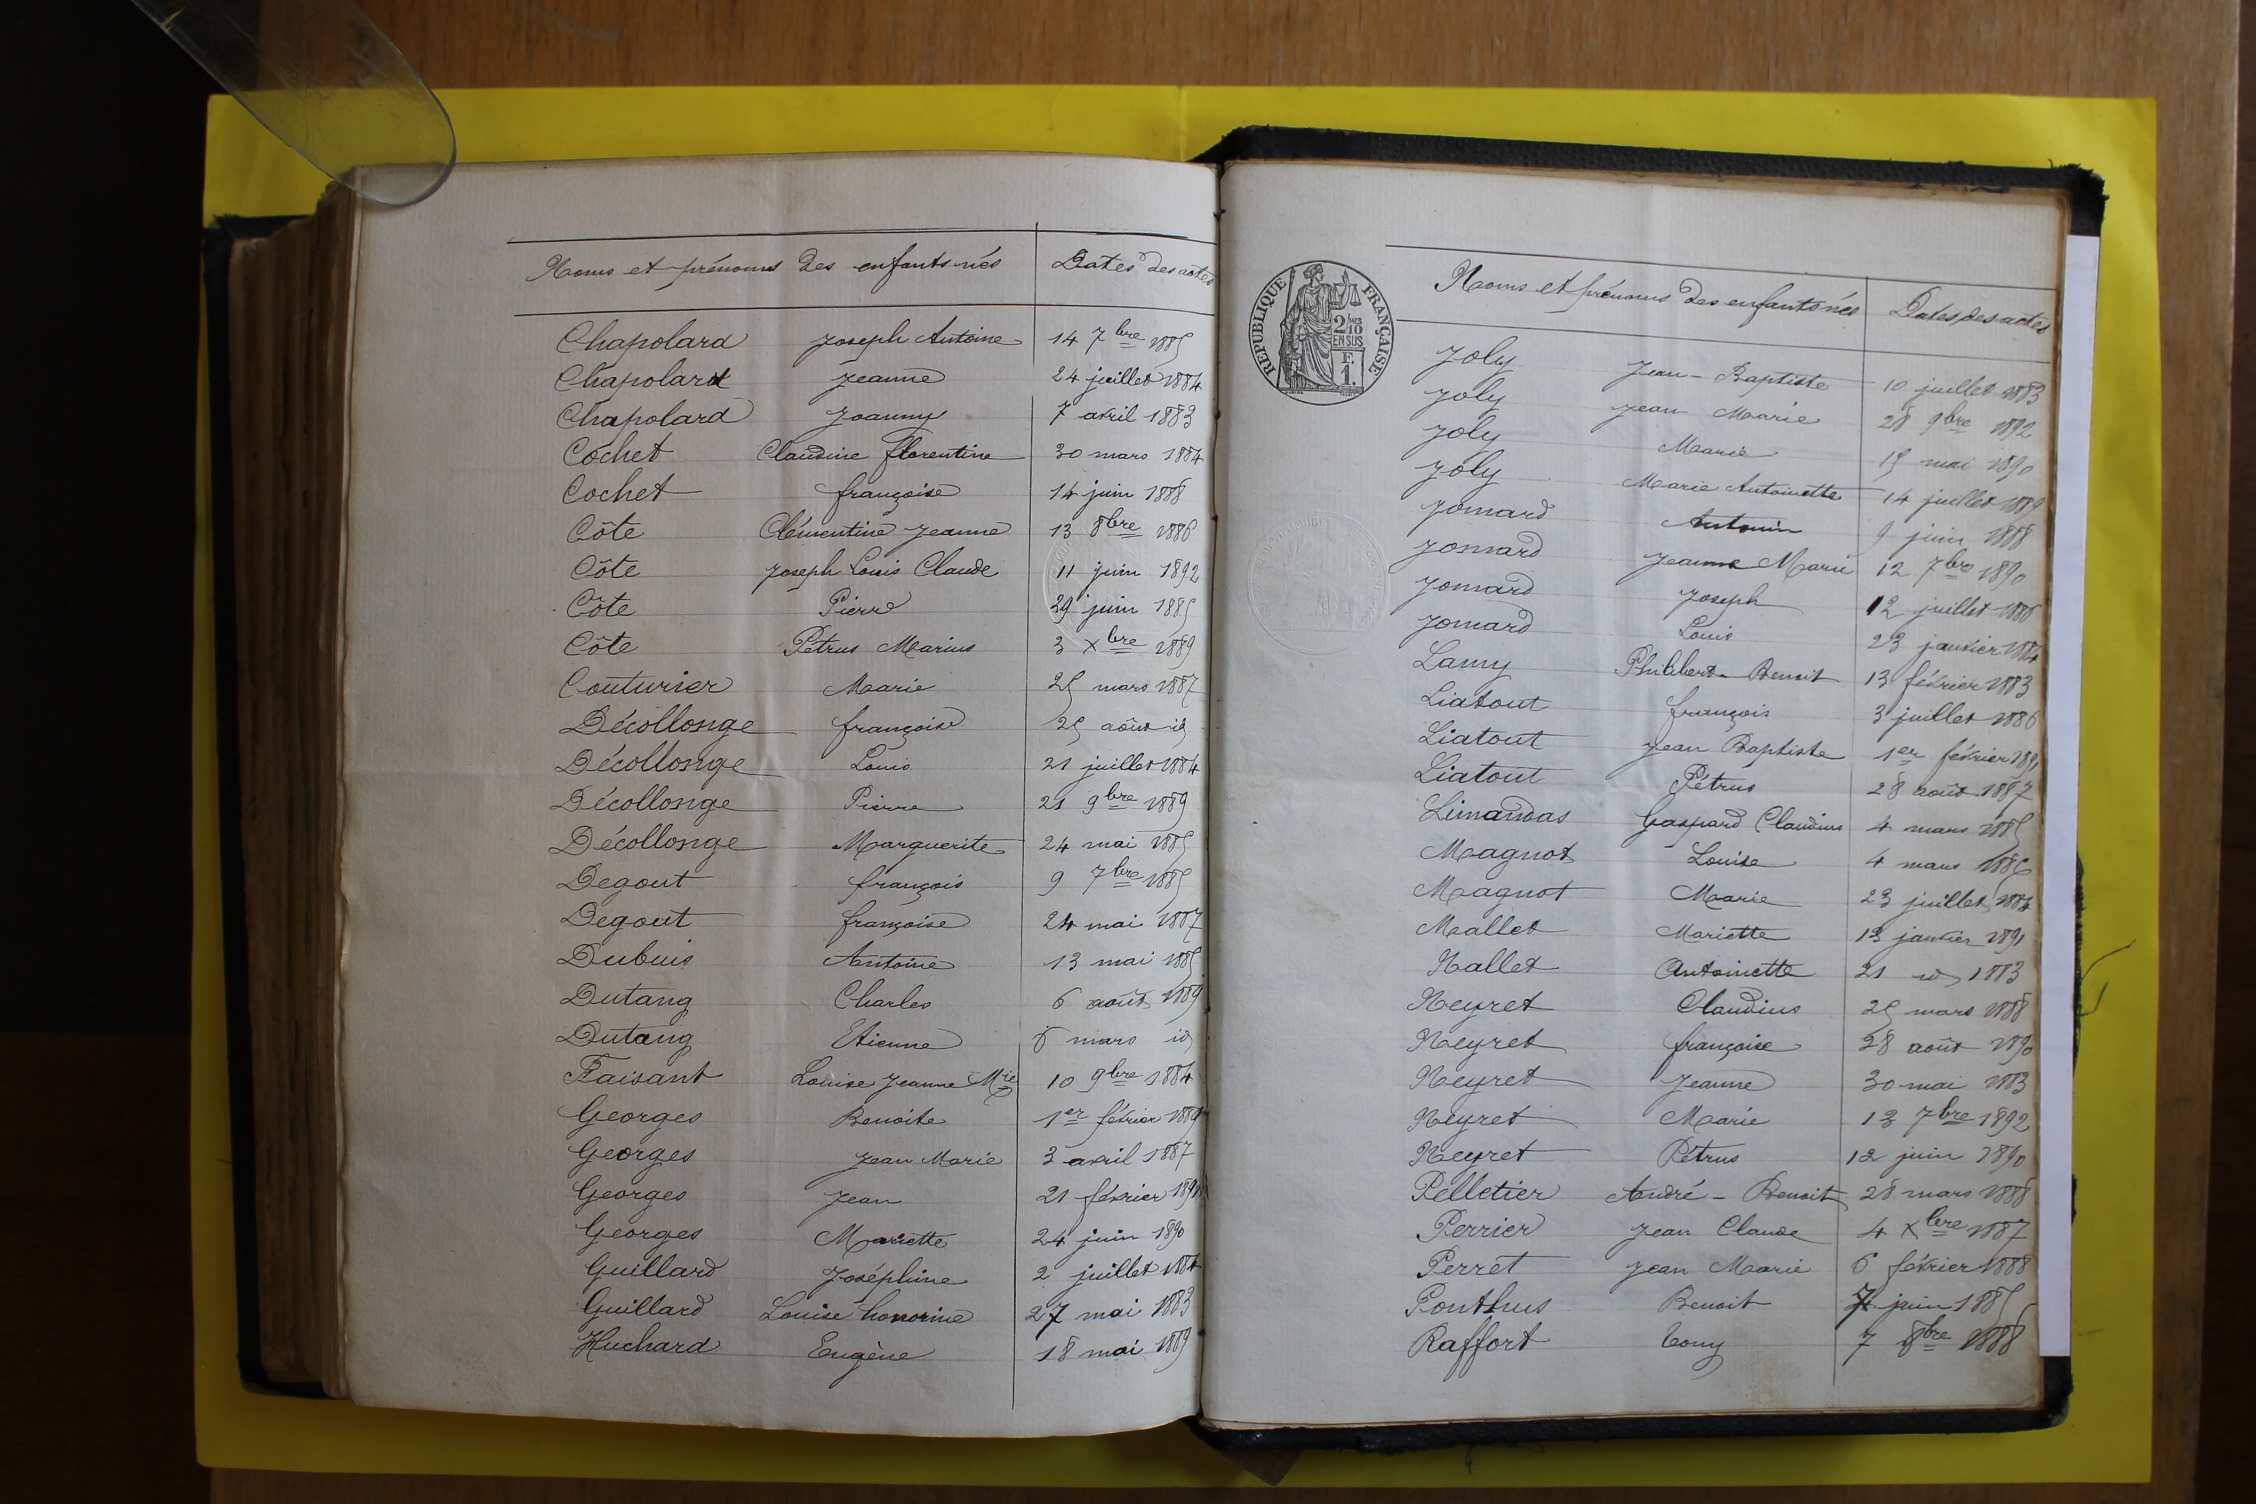 Noms et prénoms des enfants nés Dates des actes
Chapolard Joseph Antoine 14 7bre 1885
Chapolard Jeanne 24 juillet 1884
Chapolard Joanny 7 avril 1883
Cochet Claudine florentine 30 mars 1884
Cochet françoise 14 juin 1888
Côte Clémentine Jeanne 13 8bre 1886
Côte Joseph Louis Claude 11 juin 1892
Côte Pierre 29 juin 1885
Côte Pétrus Marius 3 Xbre 1889
Couturier Marie 25 mars 1887
Décollonge françoise 25 août id
Décollonge Louis 21 juillet 1884
Décollonge Pierre 21 9bre 1889
Décollonge Marguerite 24 mai 1885
Degout françois 9 7bre 1885
Degout françoise 24 mai 1887
Dubuis Antoine 13 mai 1885
Dutang Charles 6 août 1889
Dutang Etienne 6 mars id
Faisant Louise Jeanne Mie 10 9bre 1884
Georges Benoite 1er février 1889
Georges Jean Marie 3 avril 1887
Georges Jean 21 février
Georges Mariette 24 juin 1890
Guillard Joséphine 2 juillet 1884
Guillard Louise honorine 27 mai 1883
Huchard Eugène 18 mai 1889
REPUBLIQUE FRANÇAISE
2/10 EN SUS
F. 1.
Noms et prénoms des enfants nés Dates des actes
Joly Jean-Baptiste 10 juillet 1883
Joly Jean Marie 28 9bre 1892
Joly Marie 15 mai 1890
Joly Marie Antoinette 14 juillet 1889
Jomard Antonin 9 juin 1888
Jomard Jeanne Marie 12 7bre 1890
Jomard Joseph 12 juillet
Jomard Louis 23 janvier 1884
Lamy Philibert-Benoit 13 février 1883
Liatout françois 3 juillet 1886
Liatout Jean Baptiste 1er février 1891
Liatout Pétrus 28 août 1887
Limandas Gaspard Claudius 4 mars 1885
Magnot Louise 4 mars 1886
Magnot Marie 23 juillet 1884
Mallet Mariette 13 janvier 1891
Nallet Antoinette 21 id 1883
Neyret Claudius 25 mars 1888
Neyret françoise 28 août 1890
Neyret Jeanne 30 mai 1883
Neyret Marie 13 7bre 1892
Neyret Pétrus 12 juin 1890
Pelletier André-Benoit 28 mars 1888
Perrier Jean Claude 4 Xbre 1887
Perret Jean Marie 6 février 1888
Ponthus Benoit 7 juin 1885
Raffort Tony 7 8bre 1888